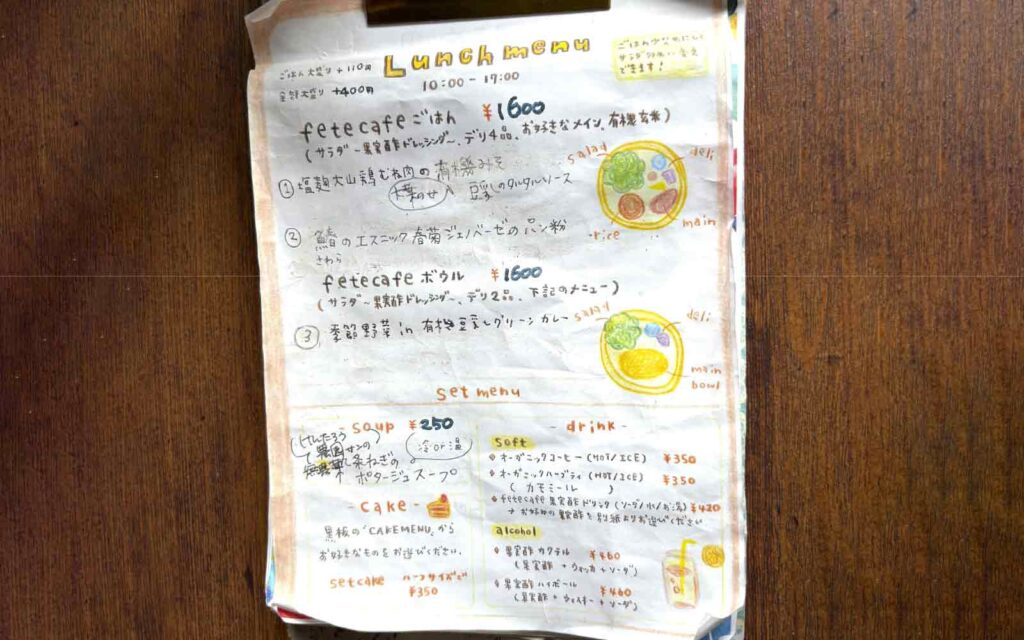 Lunch menu
10:00 - 17:00
ごはん大盛り +110円
全部大盛り +400円
ごはん少なめにして
できます!
fete cafe ごはん ¥1600
(サラダ〜果実酢ドレッシング〜、デリ4品、お好きなメイン、有機玄米)
① 塩麹大山鶏むね肉の有機みそ
豆乳のタルタルソース
② 鰆のエスニック春菊ジェノベーゼのパン粉
さわら
salad
deli
rice
main
fete cafe ボウル ¥1600
(サラダ〜果実酢ドレッシング〜、デリ2品、下記のメニュー)
③ 季節野菜 in 有機豆乳グリーンカレー
salad
deli
main
bowl
set menu
- soup ¥250
けんたろう
農園サンの
冷 or 温
九条ねぎの
ポタージュスープ
- cake -
黒板の「CAKE MENU」から
お好きなものをお選びください。
set cake ハーフサイズで
¥350
- drink -
soft
オーガニックコーヒー (HOT/ICE) ¥350
オーガニックハーブティ (HOT/ICE) ¥350
( カモミール )
fete cafe 果実酢ドリンク (ソーダ/水/お湯) ¥420
→ お好みの果実酢を別紙よりお選びください
alcohol
果実酢カクテル ¥460
(果実酢 + ウォッカ + ソーダ)
果実酢ハイボール ¥460
(果実酢 + ウィスキー + ソーダ)